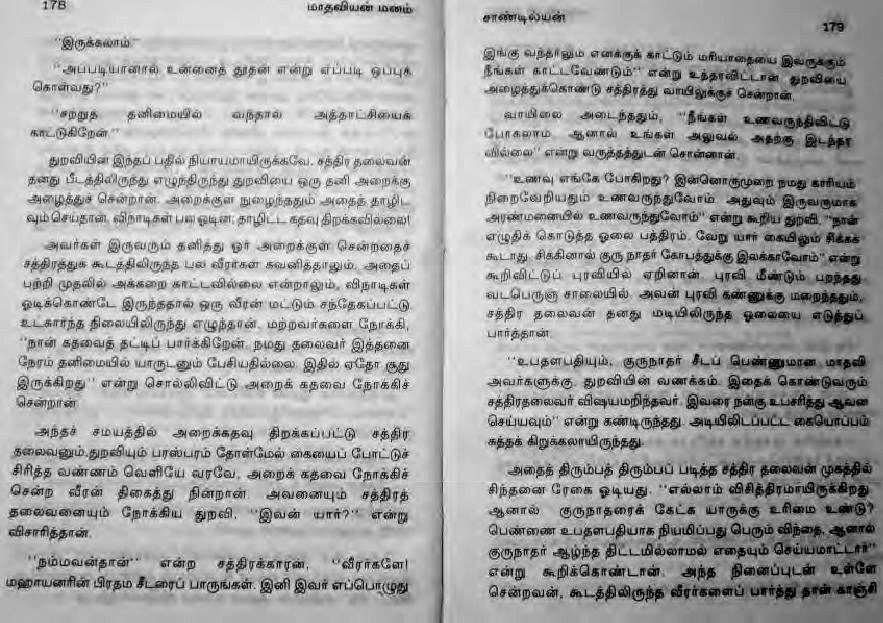 178
மாதவியன் மனம்
"இருக்கலாம்"
"அப்படியானால் உன்னைத் தூதன் என்று எப்படி ஒப்புக்
கொள்வது?"
"சற்றுத தனிமையில் வந்தால் அத்தாட்சியைக்
காட்டுகிறேன்."
துறவியின் இந்தப் பதில் நியாயமாயிருக்கவே, சத்திர தலைவன்
தனது பீடத்திலிருந்து எழுந்திருந்து துறவியை ஒரு தனி அறைக்கு
அழைத்துச் சென்றான். அறைக்குள் நுழைந்ததும் அதைத் தாழிட
வும் செய்தான். விநாடிகள் பல ஓடின; தாழிட்ட கதவு திறக்கவில்லை!
அவர்கள் இருவரும் தனித்து ஓர் அறைக்குள் சென்றதைச்
சத்திரத்துக் கூடத்திலிருந்த பல வீரர்கள் கவனித்தாலும், அதைப்
பற்றி முதலில் அக்கறை காட்டவில்லை என்றாலும், விநாடிகள்
ஓடிக்கொண்டே இருந்ததால் ஒரு வீரன் மட்டும் சந்தேகப்பட்டு
உடகார்ந்த நிலையிலிருந்து எழுந்தான். மற்றவர்களை நோக்கி,
"நான் கதவைத் தட்டிப் பார்க்கிறேன். நமது தலைவர் இத்தனை
நேரம் தனிமையில் யாருடனும் பேசியதில்லை. இதில் ஏதோ சூது
இருக்கிறது" என்று சொல்லிவிட்டு அறைக் கதவை நோக்கிச்
சென்றான்.
அந்தச் சமயத்தில் அறைக்கதவு திறக்கப்பட்டு சத்திர
தலைவனும்,துறவியும் பரஸ்பரம் தோள்மேல் கையைப் போட்டுச்
சிரித்த வண்ணம் வெளியே வரவே, அறைக் கதவை நோக்கிச்
சென்ற வீரன் திகைத்து நின்றான். அவனையும் சத்திரத்
தலைவனையும் நோக்கிய துறவி, "இவன் யார்?" என்று
விசாரித்தான்.
"நம்மவன்தான்" என்ற சத்திரக்காரன், "வீரர்களே!
மஹாயனரின் பிரதம சீடரைப் பாருங்கள். இனி இவர் எப்பொழுது
சாண்டில்யன்
179
இங்கு வந்தாலும் எனக்குக் காட்டும் மரியாதையை இவருக்கும்
நீங்கள் காட்டவேண்டும்" என்று உத்தரவிட்டான் துறவியை
அழைத்துக்கொண்டு சத்திரத்து வாயிலுக்குச் சென்றான்.
வாயிலை அடைந்ததும், "நீங்கள் உணவருந்திவிட்டு
போகலாம். ஆனால் உங்கள் அலுவல் அதற்கு இடந்தர
வில்லை" என்று வருத்தத்துடன் சொன்னான்.
"உணவு எங்கே போகிறது? இன்னொருமுறை நமது காரியம்
நிறைவேறியதும் உணவருந்துவோம். அதுவும் இருவருமாக
அரண்மனையில் உணவருந்துவோம்" என்று கூறிய துறவி, "நான்
எழுதிக் கொடுத்த ஓலை பத்திரம். வேறு யார் கையிலும் சிக்கக்
கூடாது. சிக்கினால் குரு நாதர் கோபத்துக்கு இலக்காவோம்" என்று
கூறிவிட்டுப் புரவியில் ஏறினான். புரவி மீண்டும் பறந்தது
வடபெருஞ் சாலையில். அவன் புரவி கண்ணுக்கு மறைந்ததும்,
சத்திர தலைவன் தனது மடியிலிருந்த ஓலையை எடுத்துப்
பார்த்தான்.
"உபதளபதியும், குருநாதர் சீடப் பெண்ணுமான மாதவி
அவர்களுக்கு, துறவியின் வணக்கம். இதைக் கொண்டுவரும்
சத்திரதலைவர் விஷயமறிந்தவர். இவரை நன்கு உபசரித்து ஆவன
செய்யவும்" என்று கண்டிருந்தது. அடியிலிடப்பட்ட கையொப்பம்
சுத்தக் கிறுக்கலாயிருந்தது.
அதைத் திரும்பத் திரும்பப் படித்த சத்திர தலைவன் முகத்தில்
சிந்தனை ரேகை ஓடியது. "எல்லாம் விசித்திரமாயிருக்கிறது.
ஆனால் குருநாதரைக் கேட்க யாருக்கு உரிமை உண்டு?
பெண்ணை உபதளபதியாக நியமிப்பது பெரும் விந்தை, ஆனால்
குருநாதர் ஆழ்ந்த திட்டமில்லாமல் எதையும் செய்யமாட்டார்"
என்று கூறிக்கொண்டான். அந்த நினைப்புடன் உள்ளே
சென்றவன், கூடத்திலிருந்த வீரர்களைப் பார்த்து தான் காஞ்சி